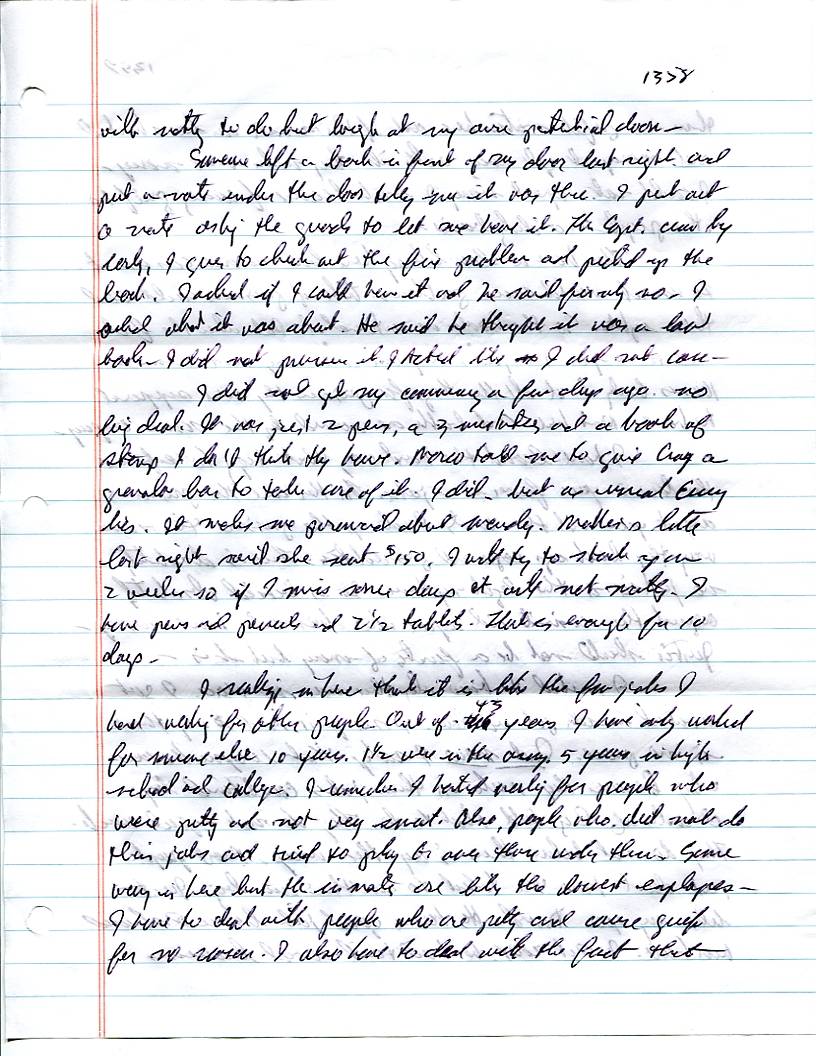 1358
with nothing to do but laugh at my own potential doom—
Someone left a book in front of my door last night and
put a note under the door telling me it was there. I put out
a note asking the guards to let me have it. The Sgt. came by
early, I guess to check out the fire problem and picked up the
book. I asked if I could have it and he said firmly no. I
asked what it was about. He said he thought it was a law
book— I did not pursue it. I acted like I did not care—
I did not get my commissary a few days ago. no
big deal. It was just 2 pens, and a book of
stamps I don't think they have. told me to give Craig a
granola bar to take care of it. I did— but as usual Emery
lies. It makes me paranoid about Wendy. Mother's letter
last night said she sent $150. I will try to stock up on
2 weeks so if I miss some days it will not matter. I
have pens and pencils and 2 1/2 tablets. That is enough for 10
days—
I realize in here that it is like the few jobs I
had working for other people. Out of 43 years I have only worked
for someone else 10 years. 1 1/2 were in the army. 5 years in high
school and college. I remember I hated working for people who
were petty and not very smart. Also, people who did not do
their jobs and tried to play G over those under them. Same
way in here but the inmates are like the lowest employees—
I have to deal with people who are petty and cause grief
for no reason. I also have to deal with the fact that